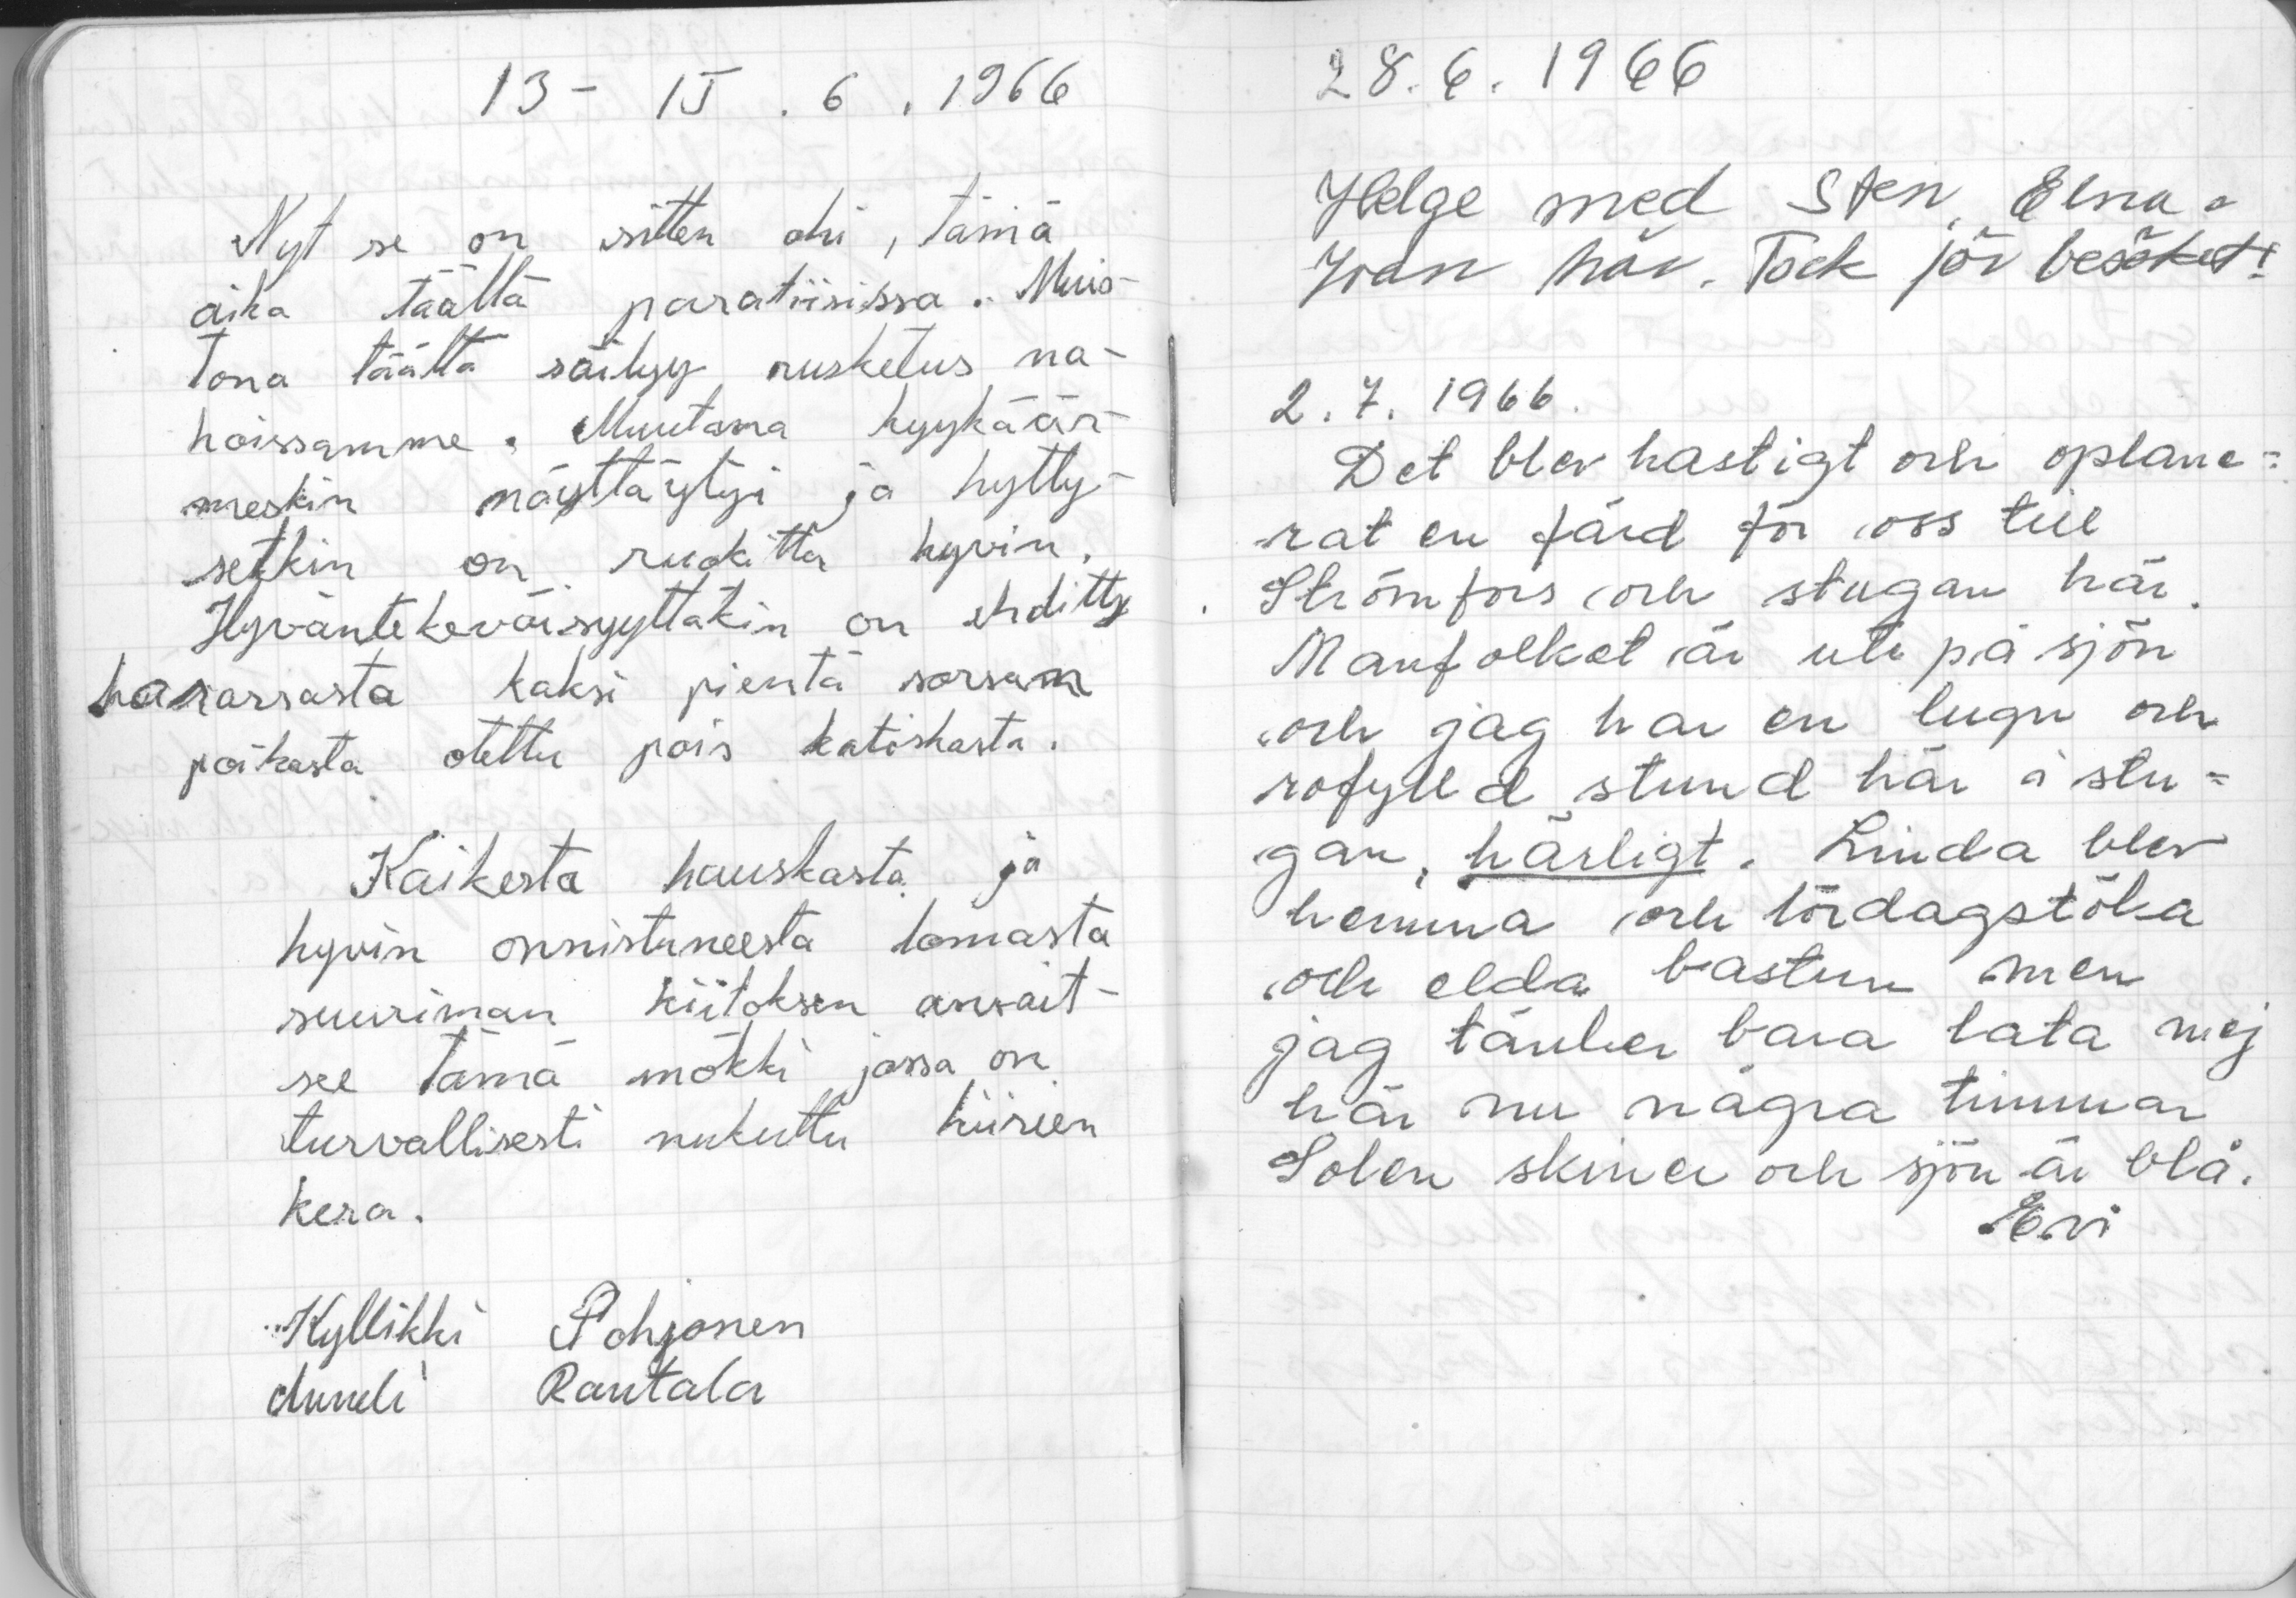 13 - 15 . 6 . 1966
Nyt se on sitten ohi, tämä
aika täällä paratiisissa. Muis-
tona täältä säilyy rusketus na-
hoissamme. Muutama kyykäär-
meskin näyttäytyi ja hytty-
setkin on ruokittu hyvin.
Hyväntekeväisyyttäkin on ehditty
harrastaa kaksi pientä sorsan
poikasta otettu pois katiskasta.
Kaikesta hauskasta ja
hyvin onnistuneesta lomasta
suuriman kiitoksen ansait-
see tämä mökki jossa on
turvallisesti nukuttu hiirien
kera.
Kyllikki Pohjonen
Anneli Rautala
28.6.1966
Helge med Sten, Elna o
Ivan här. Tack för besöket!
2.7.1966.
Det blev hastigt och oplane=
rat en färd för oss till
Strömfors och stugan här.
Manfolket är ute på sjön
och jag har en lugn och
rofylld stund här i stu=
gan, härligt. Linda blev
hemma och lördagstöka
och elda bastun men
jag tänker bara lata mej
här nu några timmar
Solen skiner och sjön är blå.
Evi